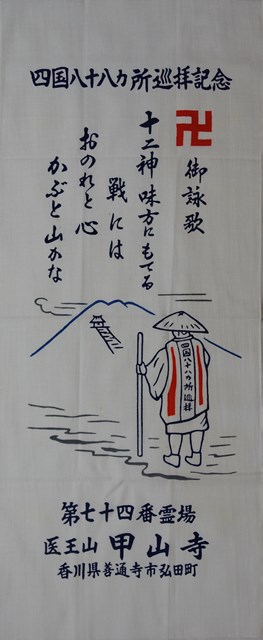 四国八十八カ所巡拝記念
卍 御詠歌
十二神味方にもてる
戦には
おのれと心
かぶと山かな
四国八十八カ所巡拝
第七十四番霊場
医王山 甲山寺
香川県善通寺市弘田町